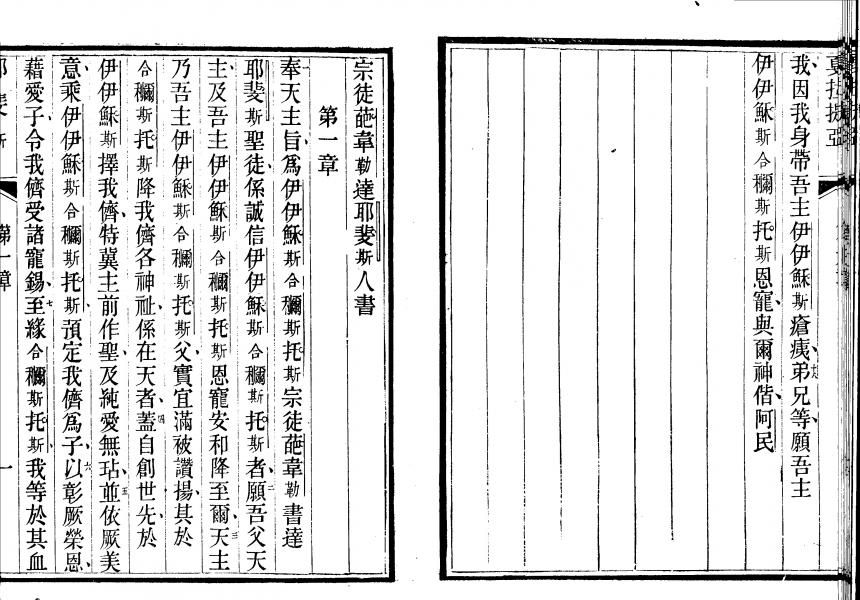 我因我身帶吾主伊伊穌斯瘡痍弟兄等願吾主
伊伊穌斯合穪斯托斯恩寵與爾神偕阿民
宗徒葩韋勒達耶斐斯人書
第一章
奉天主旨爲伊伊穌斯合穪斯托斯宗徒葩韋勒書達
耶斐斯聖徒係誠信伊伊穌斯合穪斯托斯者二願吾父天
主及吾主伊伊穌斯合穪斯托斯恩寵安和降至爾三天主
乃吾主伊伊穌斯合穪斯托斯父實宜滿被讚揚其於
合穪斯托斯降我儕各神祉係在天者四蓋自創世先於
伊伊穌斯擇我儕特冀主前作聖及純愛無玷五並依厥美
意乘伊伊穌斯合穪斯托斯預定我儕爲子六以彰厥榮恩
藉愛子令我儕受諸寵錫七至緣合穪斯托斯我等於其血
第一章
一